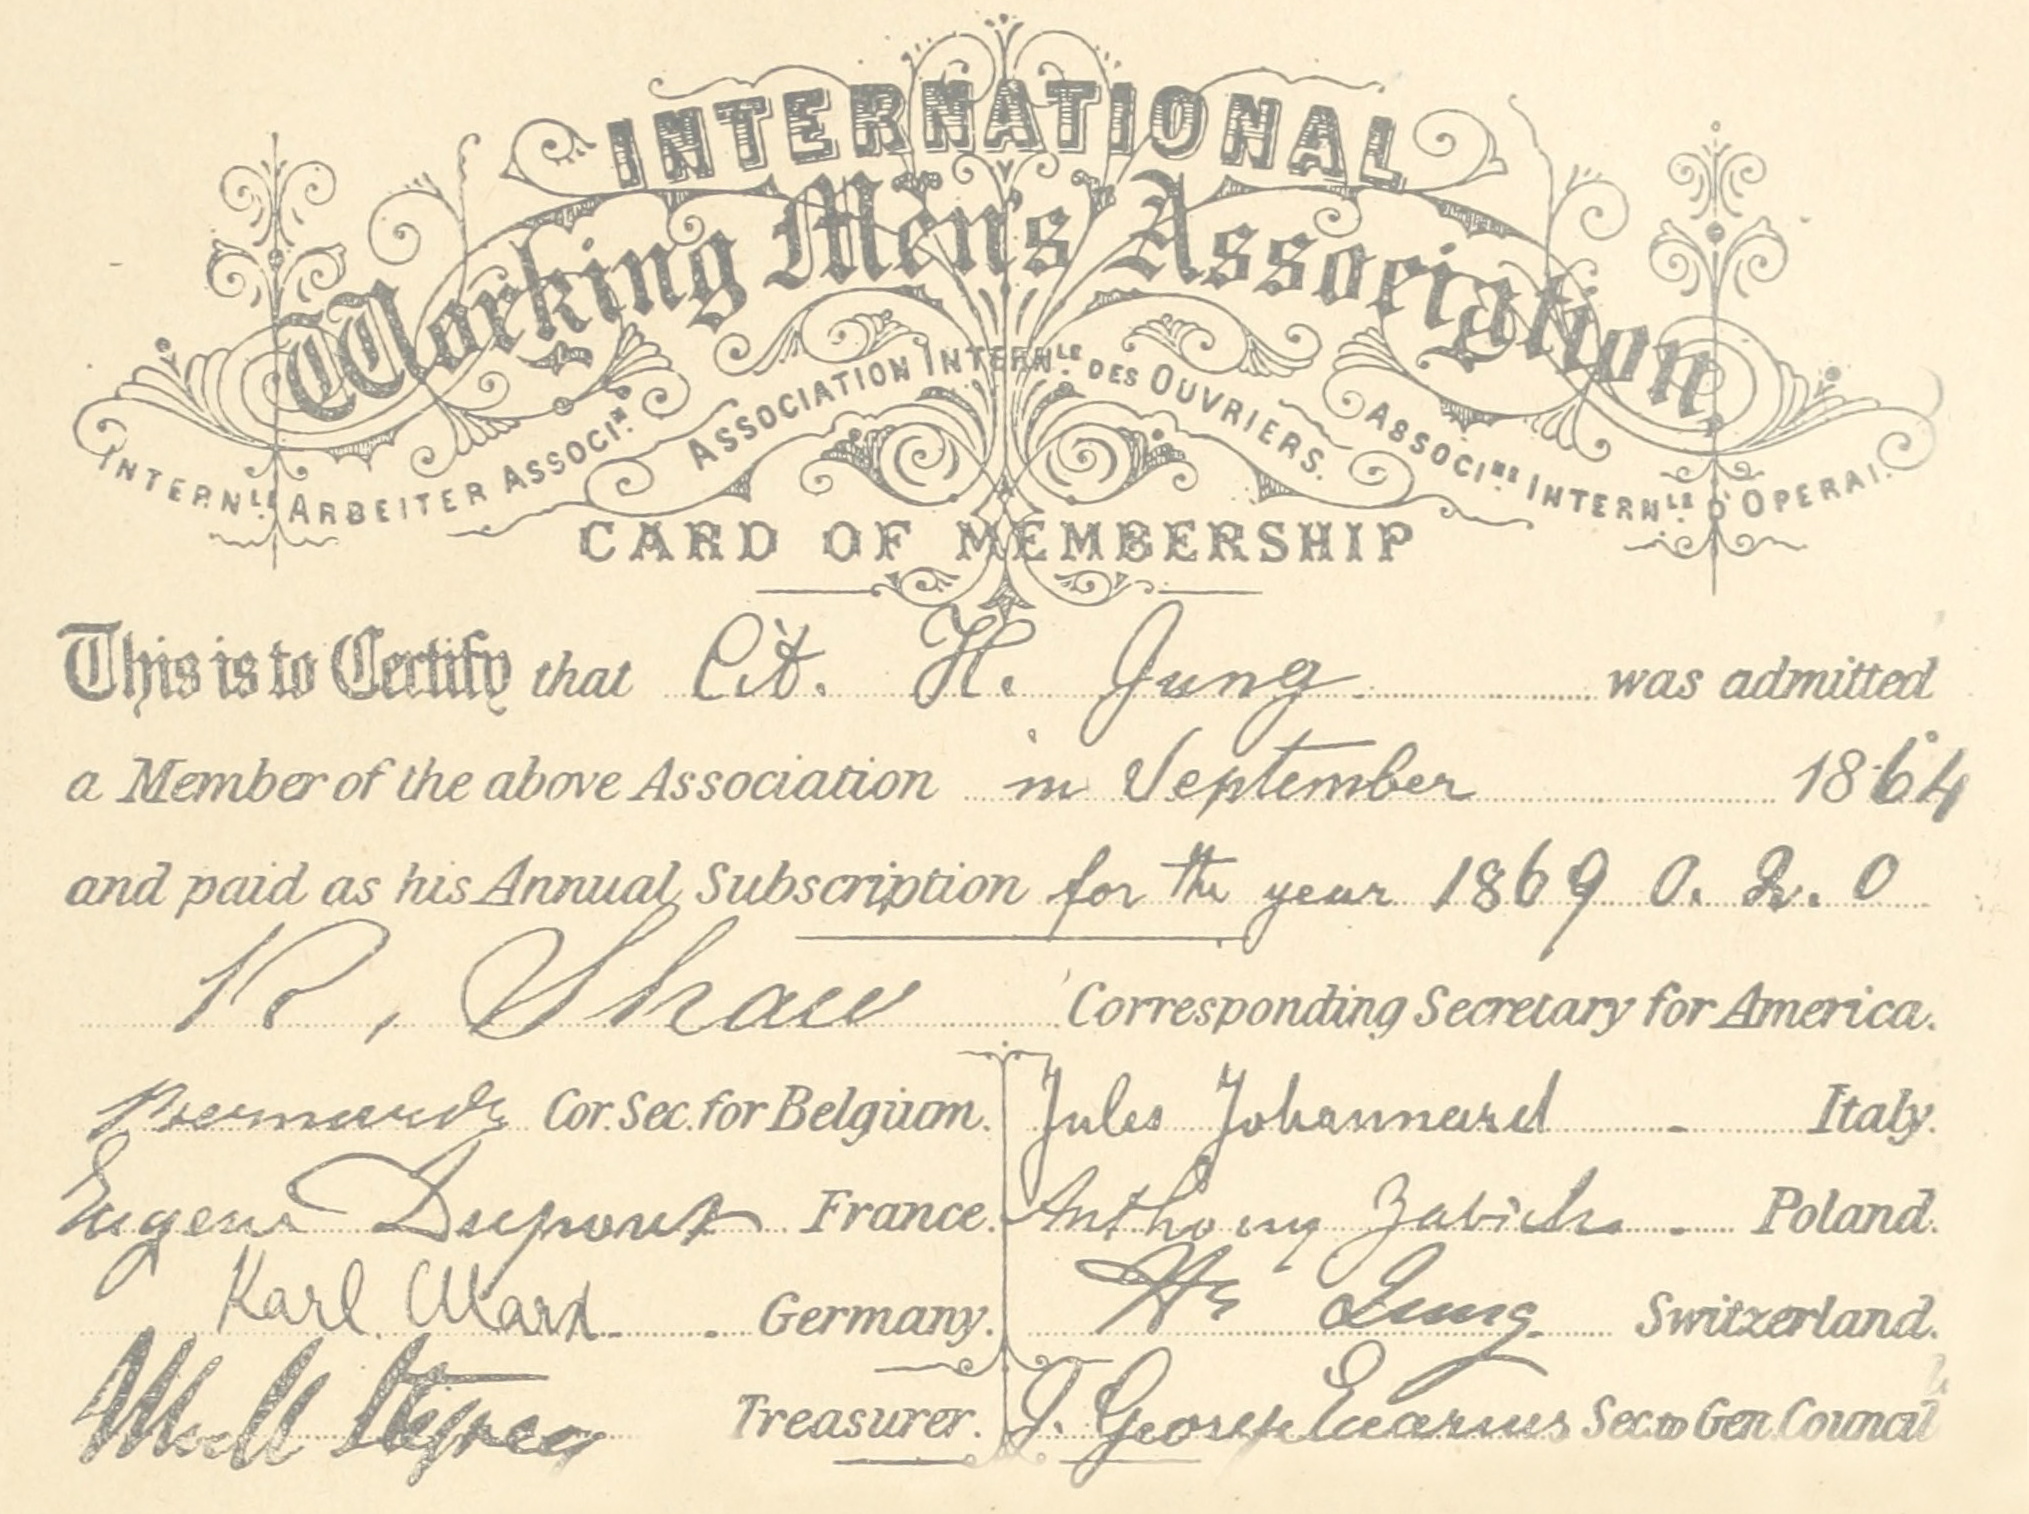 INTERNATIONAL
Working Men's Association
INTERNLE ARBEITER ASSOCIN. ASSOCIATION INTERNLE. DES OUVRIERS. ASSOCINE INTERNLE D'OPERAI.
CARD OF MEMBERSHIP
This is to Certify that Cit. H. Jung was admitted
a Member of the above Association in September 1864
and paid as his Annual Subscription for the year 1869 0. 2. 0
R, Shaw Corresponding Secretary for America.
Bernard Cor. Sec. for Belgium. Jules Johannard Italy.
Eugene Dupont France. Anthony Zabicki Poland.
Karl Marx Germany. Jung Switzerland.
Treasurer. J. George Eccarius Sec. to Gen. Council